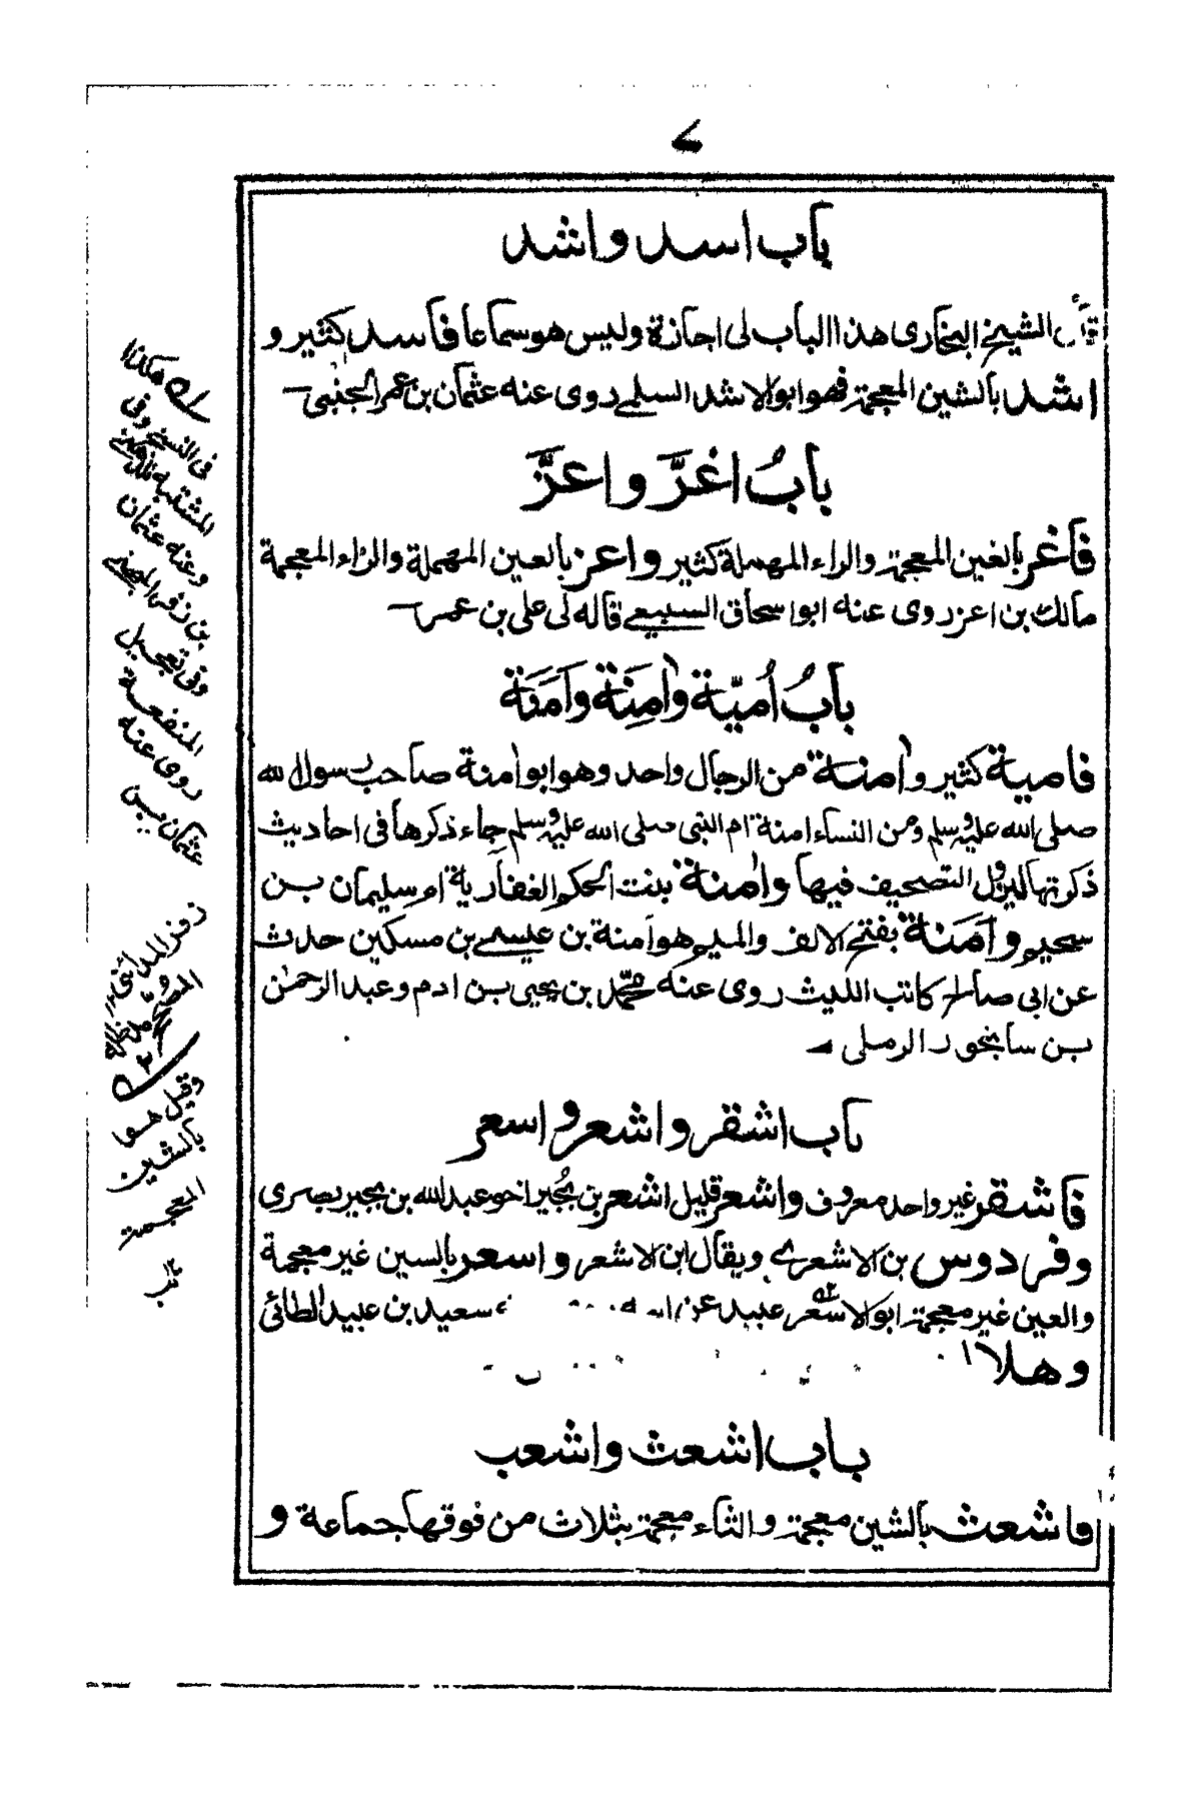 ٧
باب اسد واشد
قال الشيخ البخارى هذا الباب لى اجازة وليس هو سماعا فاسد كثير و
اشد بالشين المعجمة فهو ابو الاشد السلمي روى عنه عثمان بن عمر الجنبى
بابُ اغرَّ واعزَّ
فاغر بالغين المعجمة والراء المهملة كثير واعز بالعين المهملة والزاء المعجمة
مالك بن اعز روى عنه ابو اسحاق السبيعي قاله لى على بن عمر
بابُ اُميّة واٰمِنَة واَمَنَة
فامية كثير واٰمنة من الرجال واحد وهو ابو اٰمنة صاحب رسول الله
صلى الله عليه وسلم ومن النساء امنة ام النبى صلى الله عليه وسلم جاء ذكرها فى احاديث
ذكرتها ليزول التصحيف فيها واٰمنة بنت الحكم الغفارية ام سليمان بن
سحيم واَمَنَة بفتح الالف والميم هو اَمنة بن عيسى بن مسكين حدث
عن ابى صالح كاتب الليث روى عنه محمّد بن يحيى بن ادم وعبد الرحمٰن
بن سانجور الرملى
باب اشقر واشعر واسعر
فاشقر غير واحد معروف واشعر قليل اشعر بن بُجير اخو عبد الله بن بجير بصرى
وفردوس بن الاشعرى ويقال ابن الاشعر واسعر بالسين غير معجمة
والعين غير معجمة ابو الاسعر عبيد عن سعيد بن عبيد الطائى
وهلا
باب اشعث واشعب
فاشعث بالشين معجمة والثاء معجمة بثلاث من فوقها جماعة و
هكذا
فى النسخ وفى
المشتبه للذهبي
وعنه عثمان
بن زفر
وفى تعجيل
المنفعة
روى عنه
عثمان بن
زفر
وقيل هو
بالشين
المعجمة